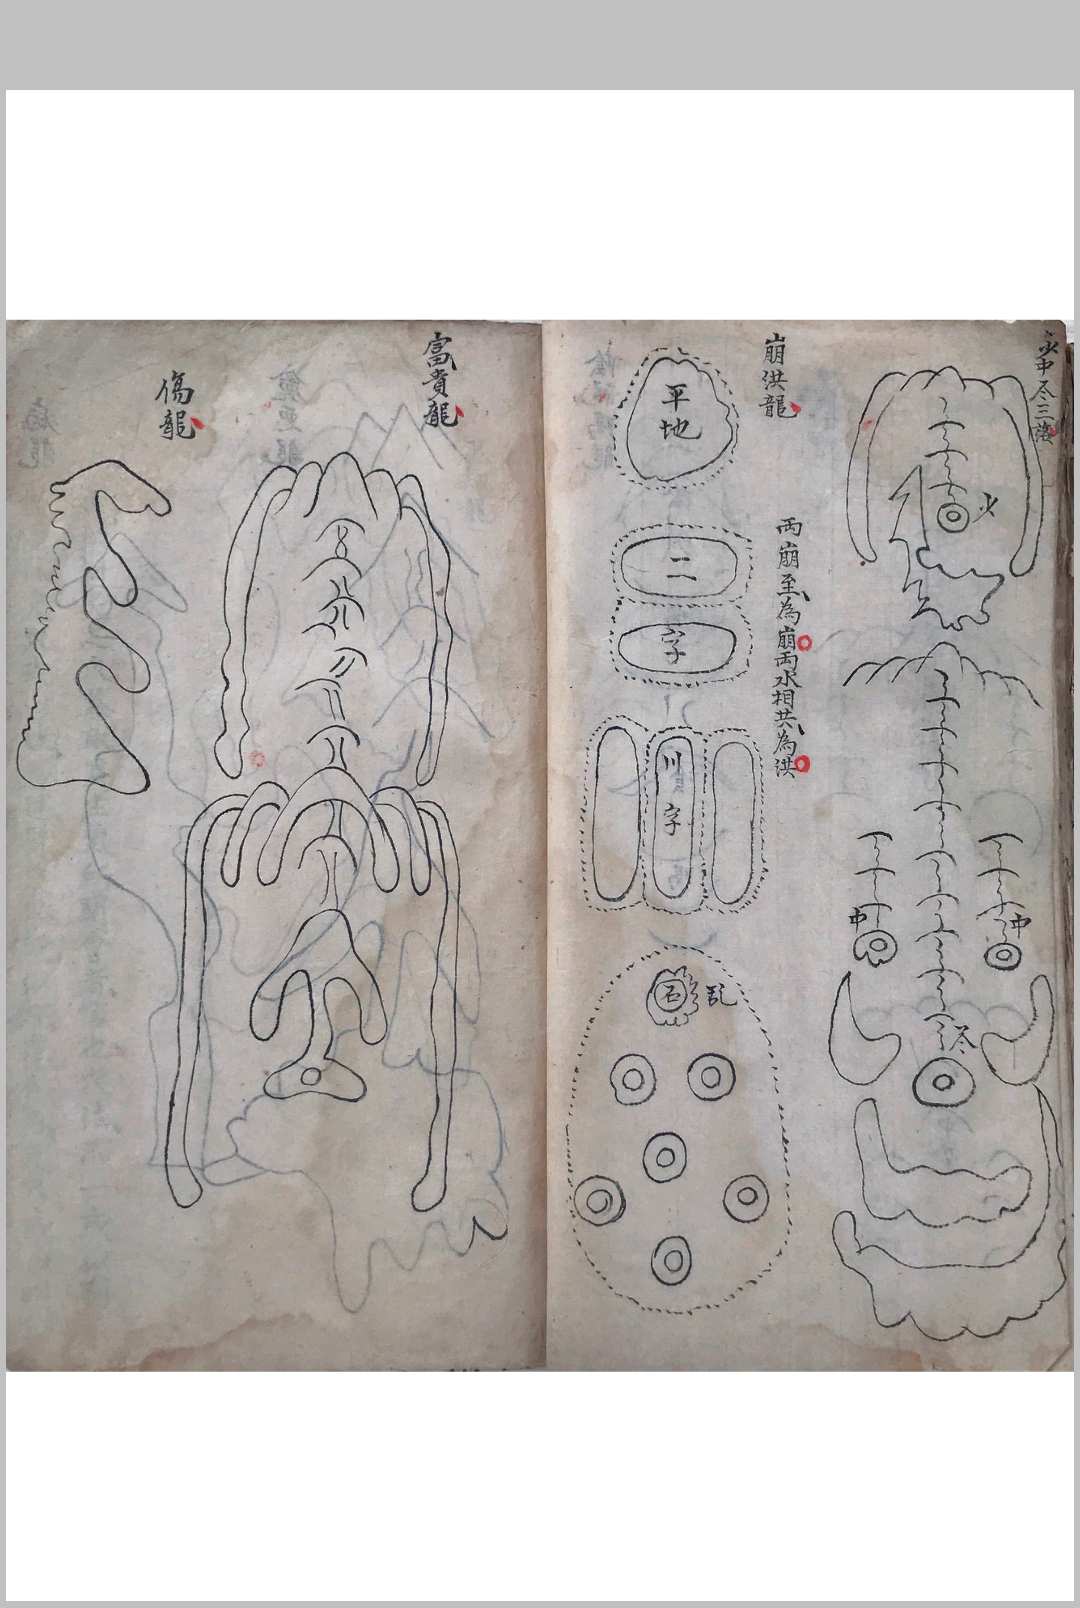 中尽三落
少
中
中
尽
崩洪龍
両崩至為崩両水相共為洪
平地
二
字
川字
石
乱
富貴龍
傷龍